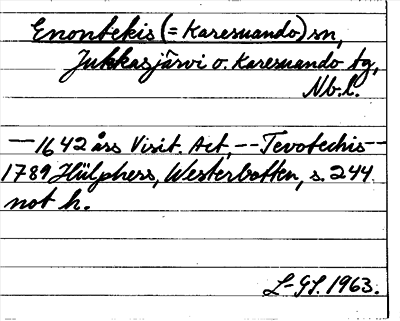 Enontekis (= Karesuando) sn,
Jukkasjärvi o. Karesuando tg,
Nb. l.
— 1642 års Visit. Act, -- Tevotechis --
1789 Hülphers, Westerbotten, s. 244.
not h.
L-GL. 1963.